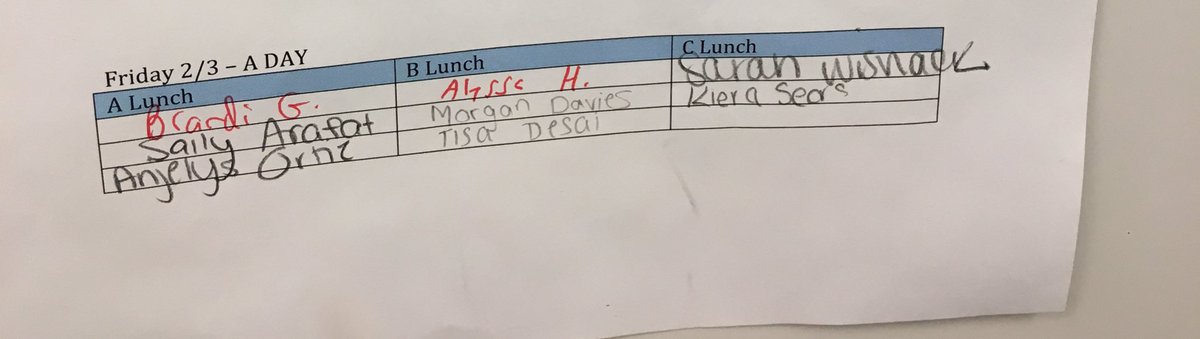 Friday 2/3 – A DAY
A Lunch
B Lunch
C Lunch
Brandi G.
Alyssa H.
Sarah Wisnack
Saily Arafat
Morgan Davies
Kiera Sears
Anjelys Ortiz
Tisa Desai